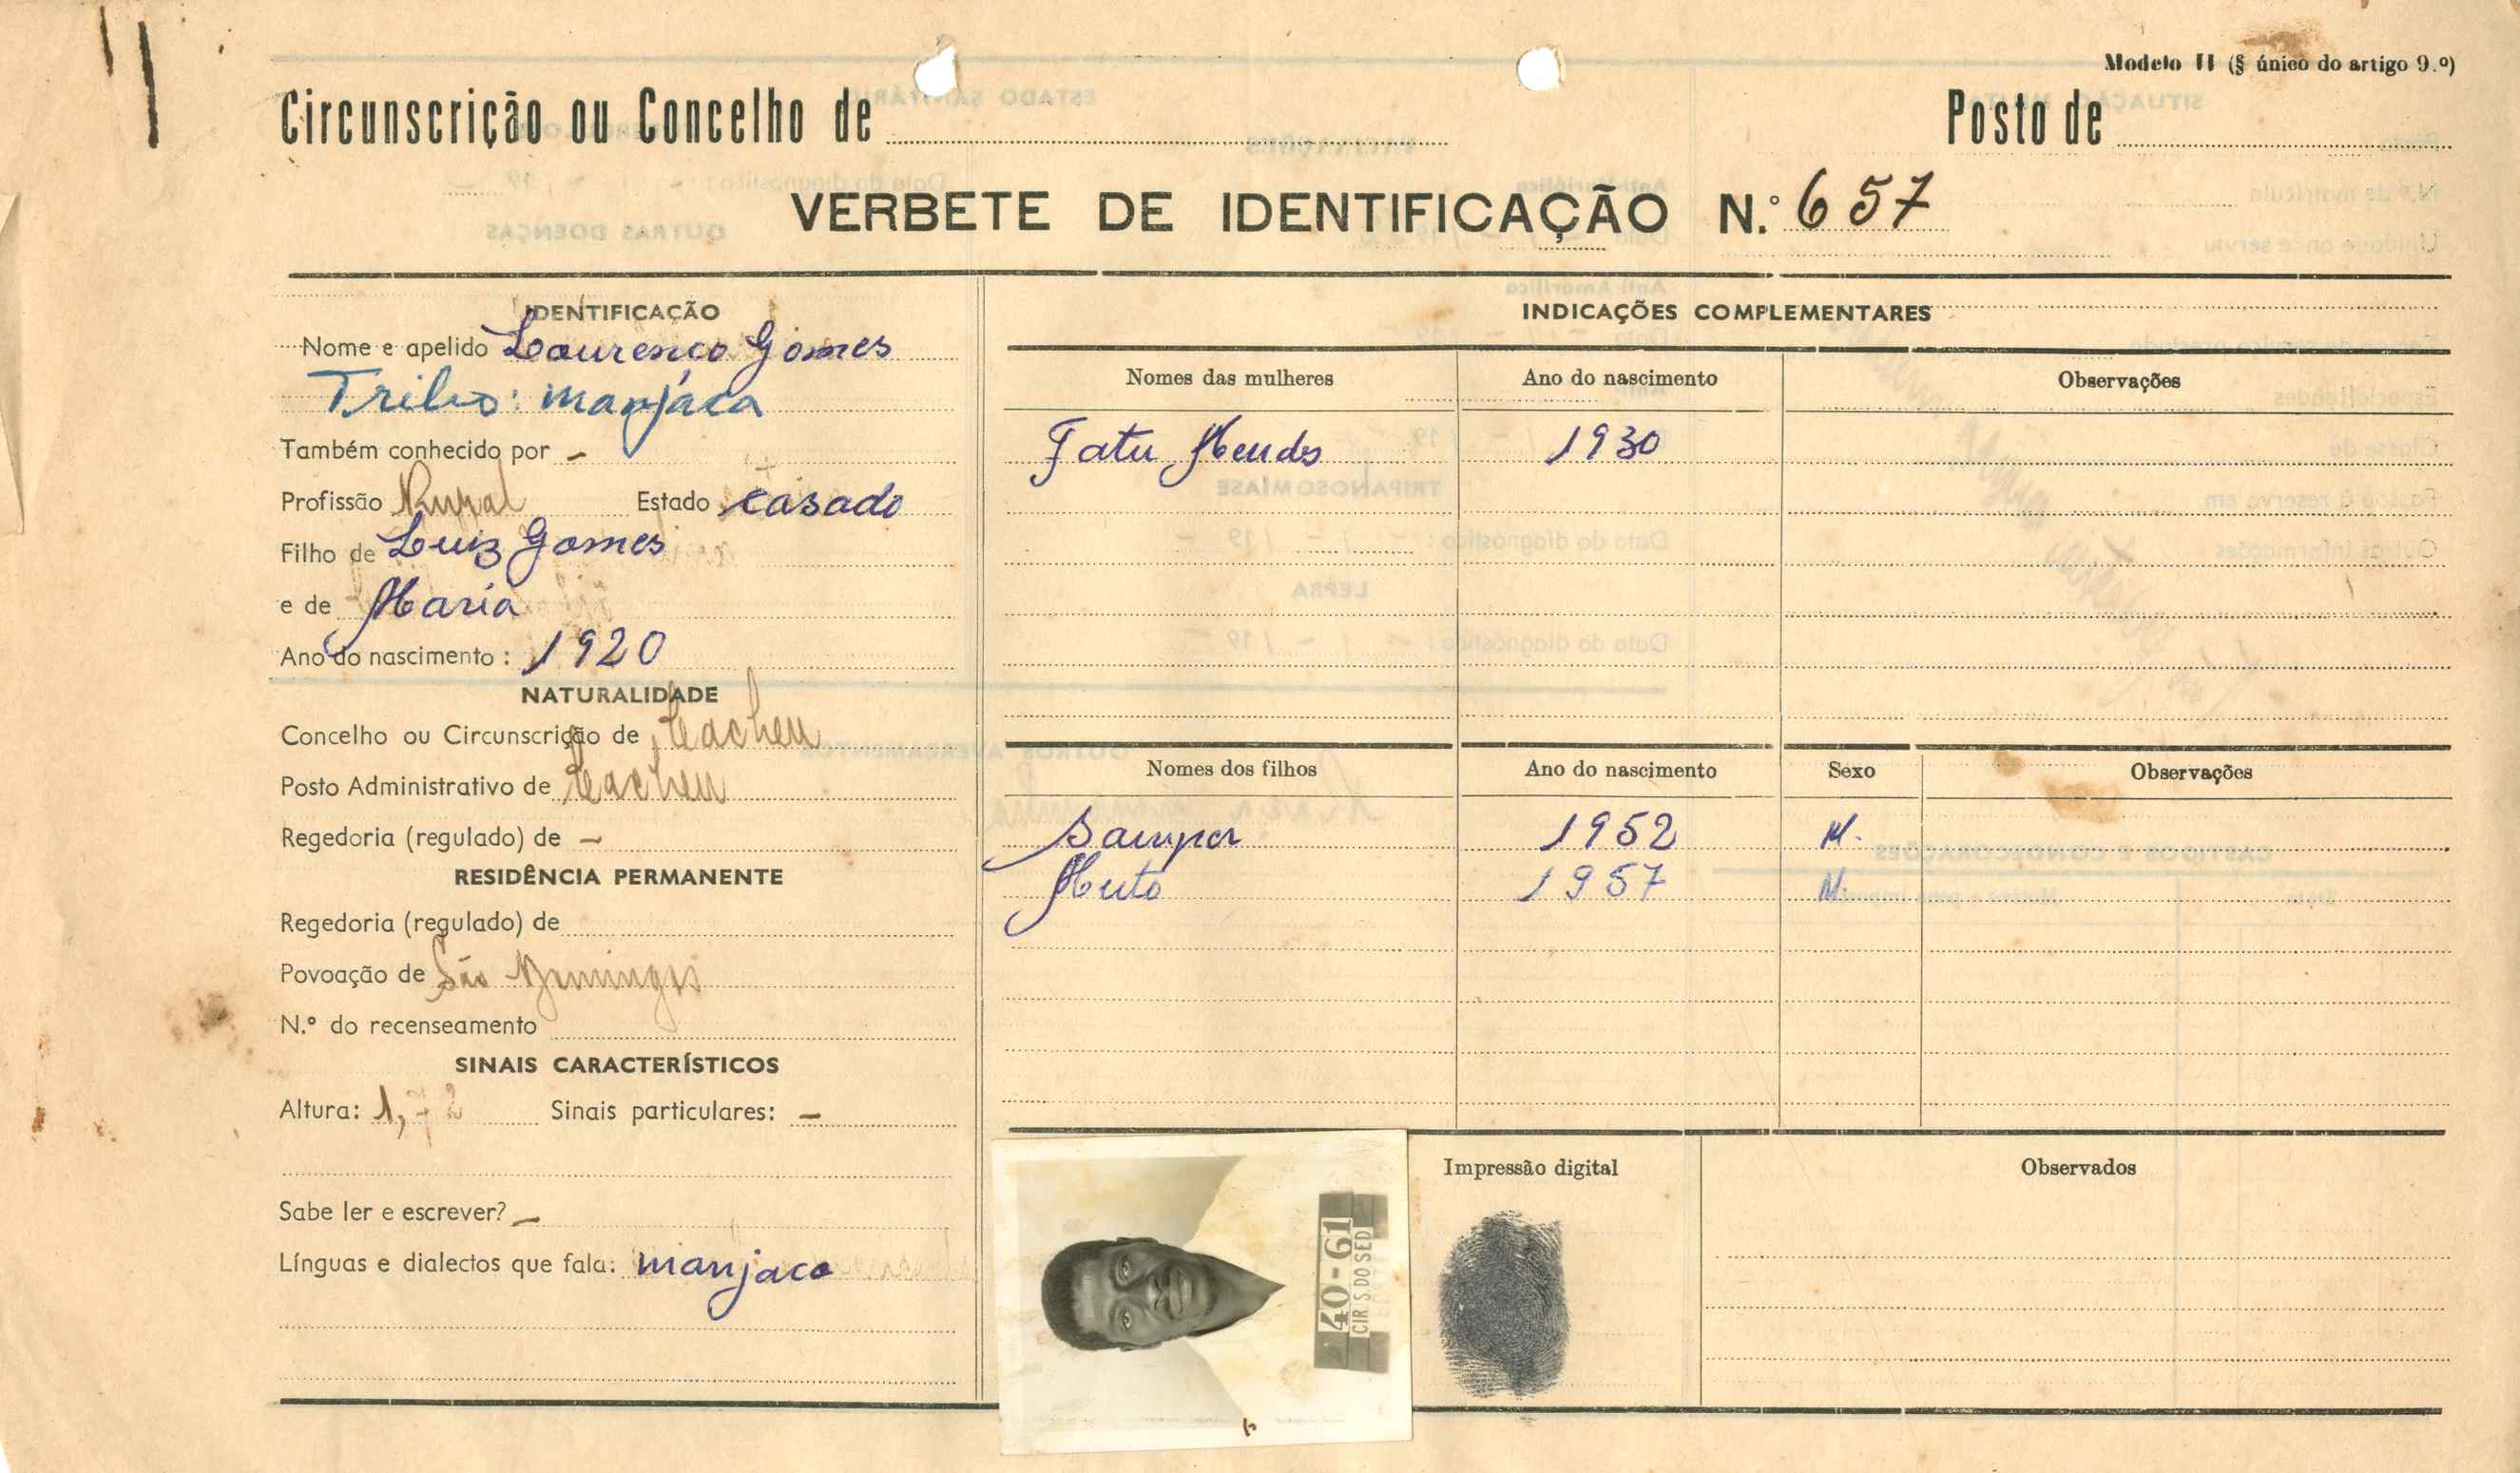 Modelo II (§ único do artigo 9.º)
Circunscrição ou Concelho de
Posto de
VERBETE DE IDENTIFICAÇÃO N.º 657
IDENTIFICAÇÃO
Nome e apelido Lourenço Gomes
Tribo: manjaca
Também conhecido por -
Profissão Rural Estado casado
Filho de Luiz Gomes
e de Maria
Ano do nascimento: 1920
NATURALIDADE
Concelho ou Circunscrição de Cacheu
Posto Administrativo de Cacheu
Regedoria (regulado) de -
RESIDÊNCIA PERMANENTE
Regedoria (regulado) de
Povoação de São Domingos
N.º do recenseamento
SINAIS CARACTERÍSTICOS
Altura: 1,72 Sinais particulares: -
Sabe ler e escrever? -
Línguas e dialectos que fala: manjaco
INDICAÇÕES COMPLEMENTARES
Nomes das mulheres Ano do nascimento Observações
Fatu Mends 1930
Nomes dos filhos Ano do nascimento Sexo Observações
Samper 1952 M.
Muto 1957 M.
40-61
CIR S. DO SED
Impressão digital
Observados